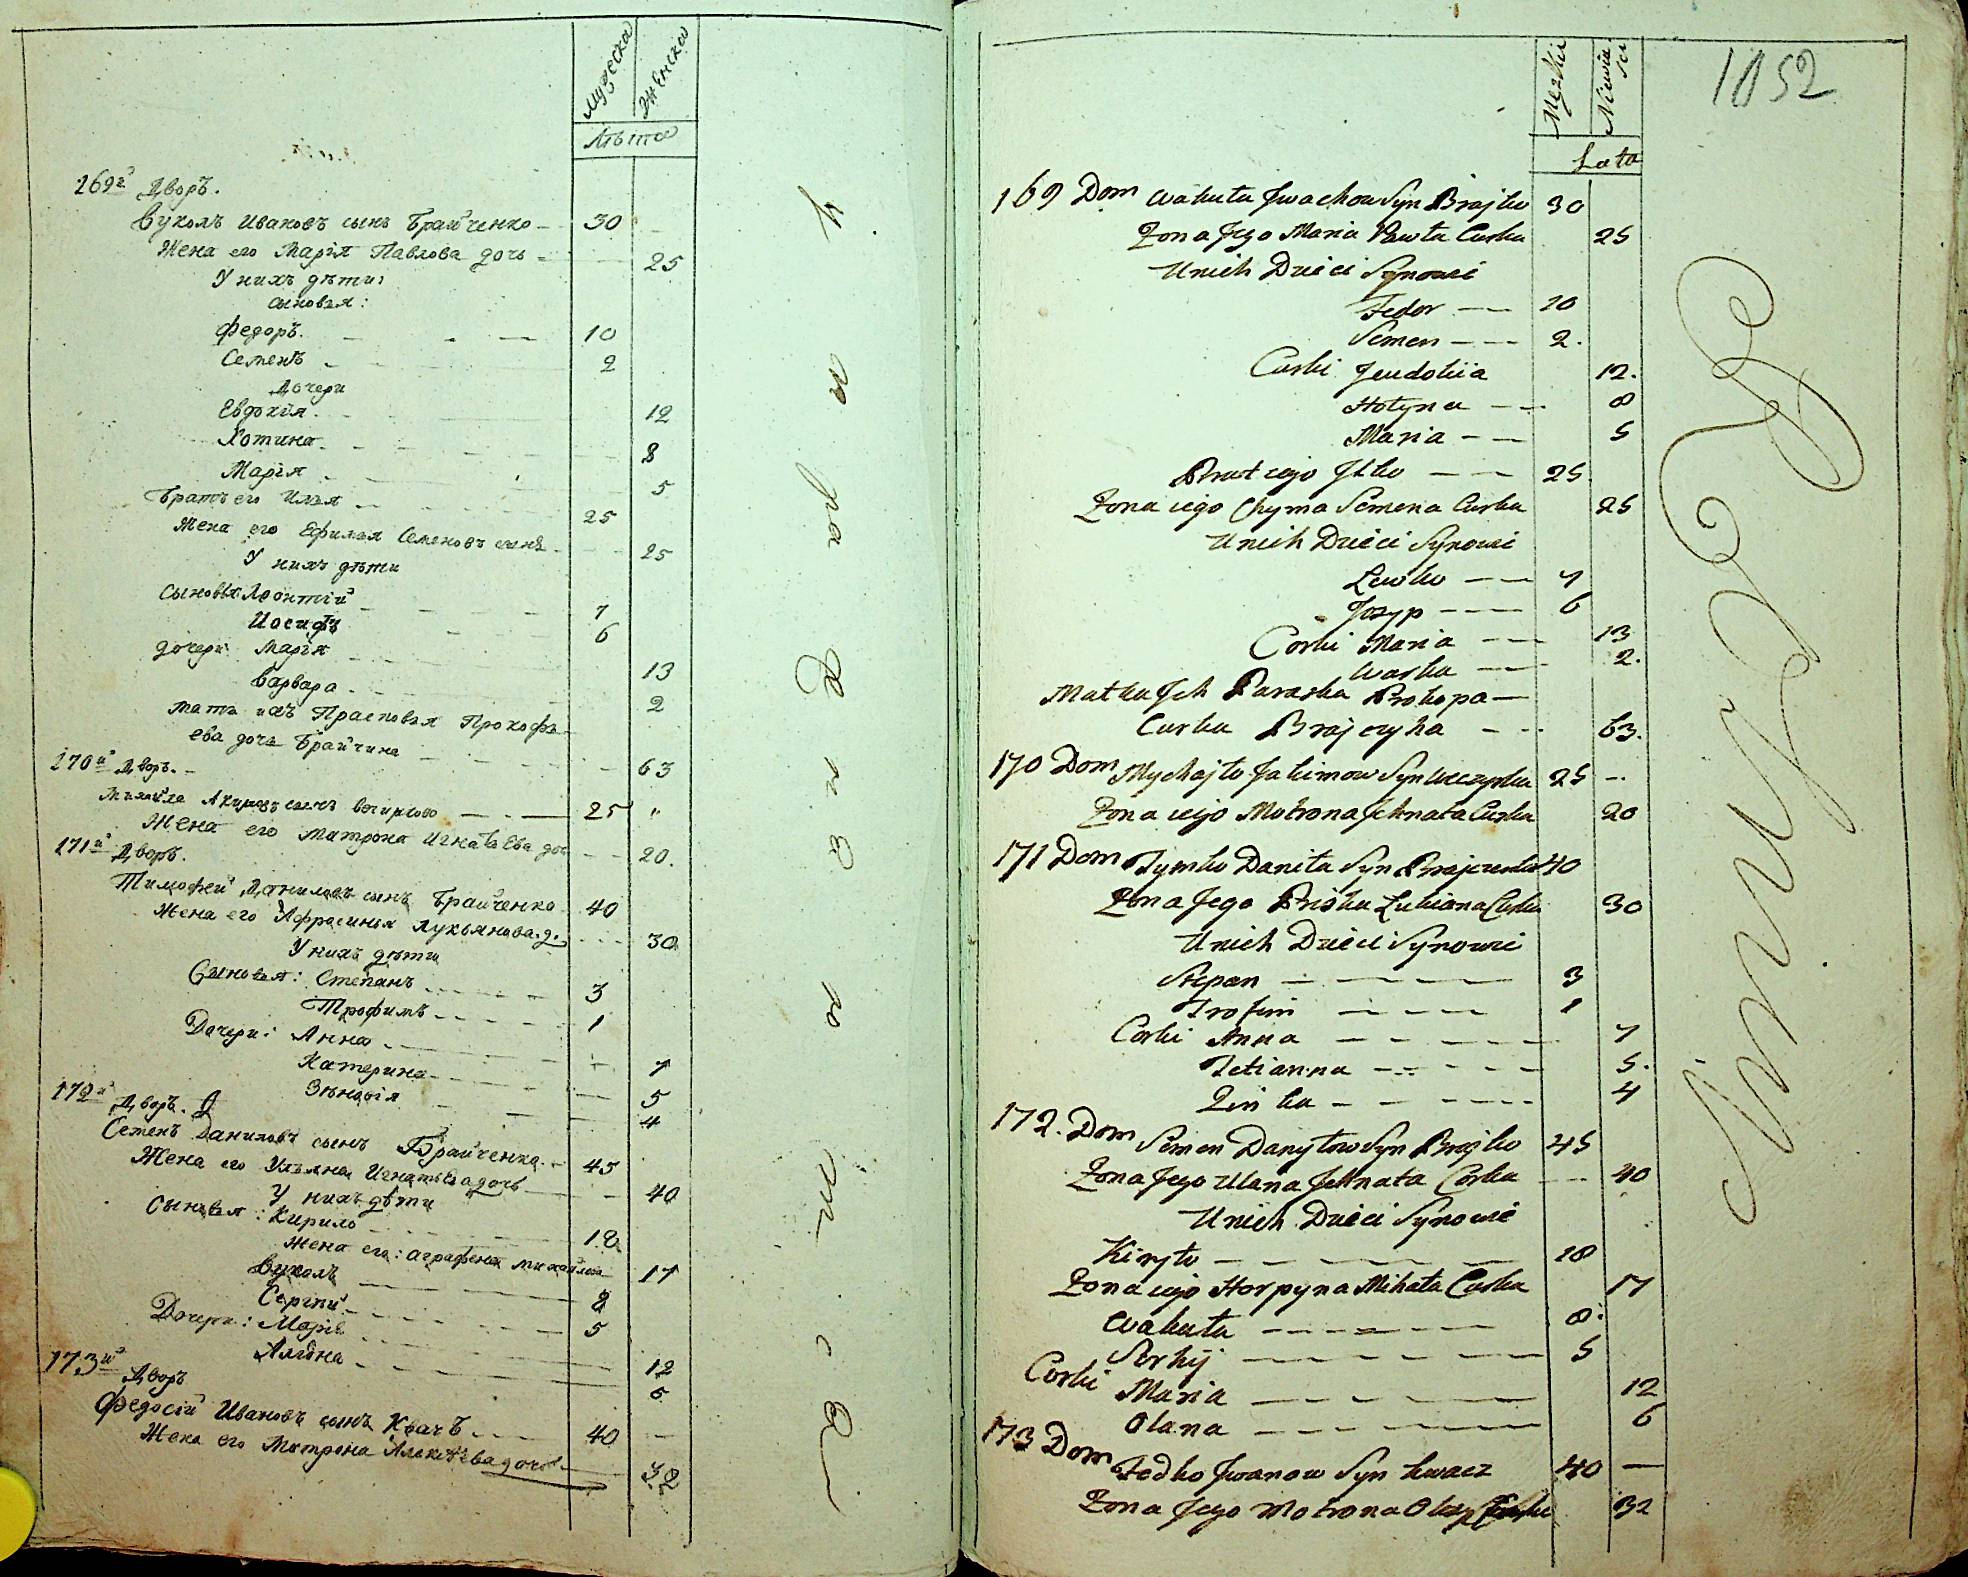 Мужеска
Женска
Лѣта
169й Дворъ.
Вуколъ Ивановъ сынъ Брайченко 30
Жена его Марія Павлова дочь 25
У нихъ дѣти:
сыновья:
Федоръ. 10
Семенъ 2
Дочери
Евдокія. 12
Хотина 8
Марія 5
Братъ его Илья 25
Жена его Ефимья Семеновъ сынъ 25
У нихъ дѣти
Сыновья Леонтій 7
Иосифъ 6
дочери Марія 13
Варвара 2
Мать ихъ Прасковья Прокофь-
ева дочь Брайчиха 63
170й Дворъ.
Михайла Акимовъ сынъ 25 "
Жена его Матрона Игнатьева доч 20.
171й Дворъ.
Тимофей Даниловъ сынъ Брайченко 40
Жена его Афросинья Лукьянова д. 30
У нихъ дѣти
Сыновья: Степанъ 3
Трофимъ 1
Дочери: Анна 7
Катерина 5
Зѣновія 4
172й Дворъ.
Семенъ Даниловъ сынъ Брайченко. 45
Жена его Ульяна Игнатьева дочь 40
У нихъ дѣти
Сыновья: Кирило 18
Жена его: Аграфена Михайлова 17
Вуколъ 8
Сергій 5
Дочери: Марія 12
Алёна 6
173й Дворъ
Федосій Ивановъ сынъ Квачъ 40
Жена его Матрона Алексѣева дочь 32
1852
Męzkie
Niewieś
cie
Lata
169 Dom Wakuła Jwachow Syn Brajko 30
Żona Jego Maria Pawła Curka 25
Unich Dzieci Synowie
Fedor 10
Semen 2.
Curki Jeudokiia 12.
Hotyna 8
Maria 5
Brat iego Jlko 25
Żona iego Chyma Semena Curka 25
Unich Dzieci Synowie
Lewko 7
Jozyp 6
Corki Maria 13
Warka 2.
Matka Jch Paraska Prokopa
Curka Brajczyha 63.
170 Dom Mychajło Jakimow Syn 25
Żona iejo Motrona Jchnata Curka 20
171 Dom Tymko Daniła Syn Brajczenko 40
Żona Jego Priśka Lukiana Curka 30
Unich Dzieci Synowie
Stepan 3
Trofim 1
Corki Anna 7
Tetianna 5.
Zinka 4
172. Dom Semen Danyłow Syn Brajko 45
Żona Jego Ulana Jchnata Corka 40
Unich Dzieci Synowie
Kiryło 18
Żona iejo Horpyna Mihała Curka 17
Wakuła 8
Serhij 5
Corki Maria 12
Olana 6
173 Dom
Fedko Jwanow Syn Kwacz 40
Żona Jego Motrona Curka 32